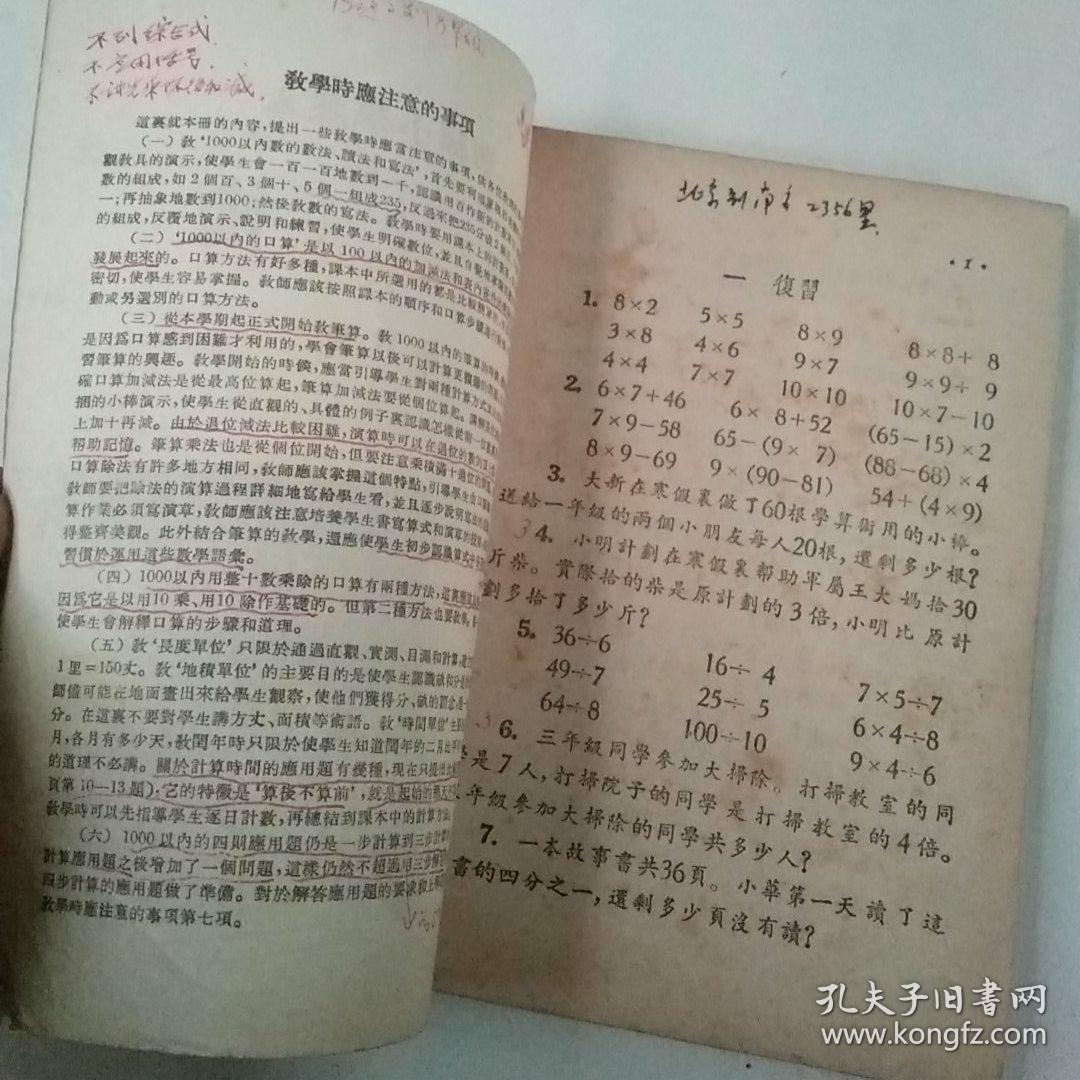 不列綜合式.
不
教學時應注意的事項
這裏就本冊的內容,提出一些教學時應當注意的事項,供各位教
(一)教‘1000以內數的數法、讀法和寫法’,首先要利用
觀教具的演示,使學生會一百一百地數到一千,認識用百作新的計數
數的組成,如2個百、3個十、5個一組成235,反過來把235分成2
一;再抽象地數到1000;然後教數的寫法。教學時要用課本上的計數
的組成,反覆地演示、說明和練習,使學生明確數位,並且
(二)‘1000以內的口算’是以100以內的加減法和表內
發展起來的。口算方法有好多種,課本中所選用的都是比較
密切,使學生容易掌握。教師應該按照課本的順序和口算步驟
動或另選別的口算方法。
(三)從本學期起正式開始教筆算。教1000以內的筆算
是因爲口算感到困難才利用的,學會筆算以後可以計算更複雜的
習筆算的興趣。教學開始的時候,應當引導學生對兩種計算方式
確口算加減法是從最高位算起,筆算加減法要從個位算起。講解
捆的小棒演示,使學生從直觀的、具體的例子裏認識怎樣從前一位
上加十再減。由於退位減法比較困難,演算時可以在退位的數
帮助記憶。筆算乘法也是從個位開始,但要注意乘積滿十進位的
口算除法有許多地方相同,教師應該掌握這個特點,引導學生由口算
教師要把除法的演算過程詳細地寫給學生看,並且逐步說明寫法的
算作業必須寫演草,教師應該注意培養學生書寫算式和演草的技
得整齊美觀。此外結合筆算的教學,還應使學生初步認識算式中
習慣於運用這些數學語彙。
(四)1000以內用整十數乘除的口算有兩種方法,這裏應
因爲它是以用10乘、用10除作基礎的。但第二種方法也要教學,
使學生會解釋口算的步驟和道理。
(五)教‘長度單位’只限於通過直觀、實測、目測和計算,建立
1里=150丈。教‘地積單位’的主要目的是使學生認識畝和分
師儘可能在地面畫出來給學生觀察,使他們獲得分、畝的觀念,
分。在這裏不要對學生講方丈、面積等術語。教‘時間單位’
月,各月有多少天,教閏年時只限於使學生知道閏年的二月比平年
的道理不必講。關於計算時間的應用題有幾種,現在只提出
頁第10—13題),它的特徵是‘算後不算前’,就是起始的那天
教學時可以先指導學生逐日計數,再總結到課本中的計算方法
(六)1000以內的四則應用題仍是一步計算到三步計算
計算應用題之後增加了一個問題,這樣仍然不超過用三步解
四步計算的應用題做了準備。對於解答應用題的要求和上學
教學時應注意的事項第七項。
北京到南京 2356里
·1·
一 復習
1. 8×2 5×5 8×9 8×8+ 8
3×8 4×6 9×7 9×9+ 9
4×4 7×7 10×10 10×7−10
2. 6×7+46 6× 8+52 (65−15)×2
7×9−58 65−(9× 7) (88−68)×4
8×9−69 9×(90−81) 54+(4×9)
3. 大新在寒假裏做了60根學算術用的小棒。
送給一年級的兩個小朋友每人20根,還剩多少根?
4. 小明計劃在寒假裏帮助軍屬王大媽拾30
斤柴。實際拾的柴是原計劃的3倍,小明比原計
劃多拾了多少斤?
5. 36÷6 16÷ 4 7×5÷7
49÷7 25÷ 5 6×4÷8
64÷8 100÷10 9×4÷6
6. 三年級同學參加大掃除。打掃教室的同
是7人,打掃院子的同學是打掃教室的4倍。
年級參加大掃除的同學共多少人?
7. 一本故事書共36頁。小華第一天讀了這
書的四分之一,還剩多少頁沒有讀?
孔夫子旧書网
www.kongfz.com